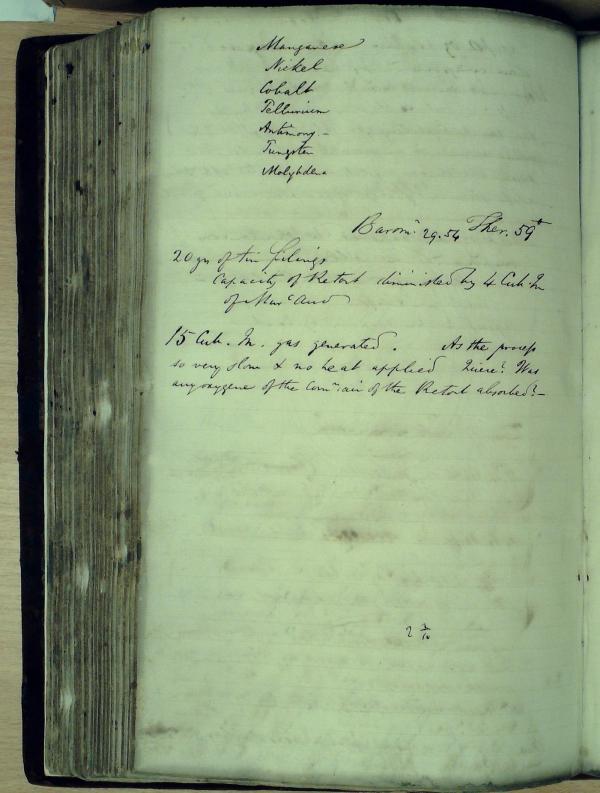 Manganese
Nickel
Cobalt
Tellurium
Antimony -
Tungsten
Molybdena
Barom.r 29.54 Ther. 59°
20 grs of tin filings
Capacity of Retort diminished by 4 Cub. In
of Mur.c Acid
15 Cub. In. gas generated. As the process
so very slow & no heat applied Quere? Was
any oxygene of the Com.n air of the Retort absorbed? -
2 3/10